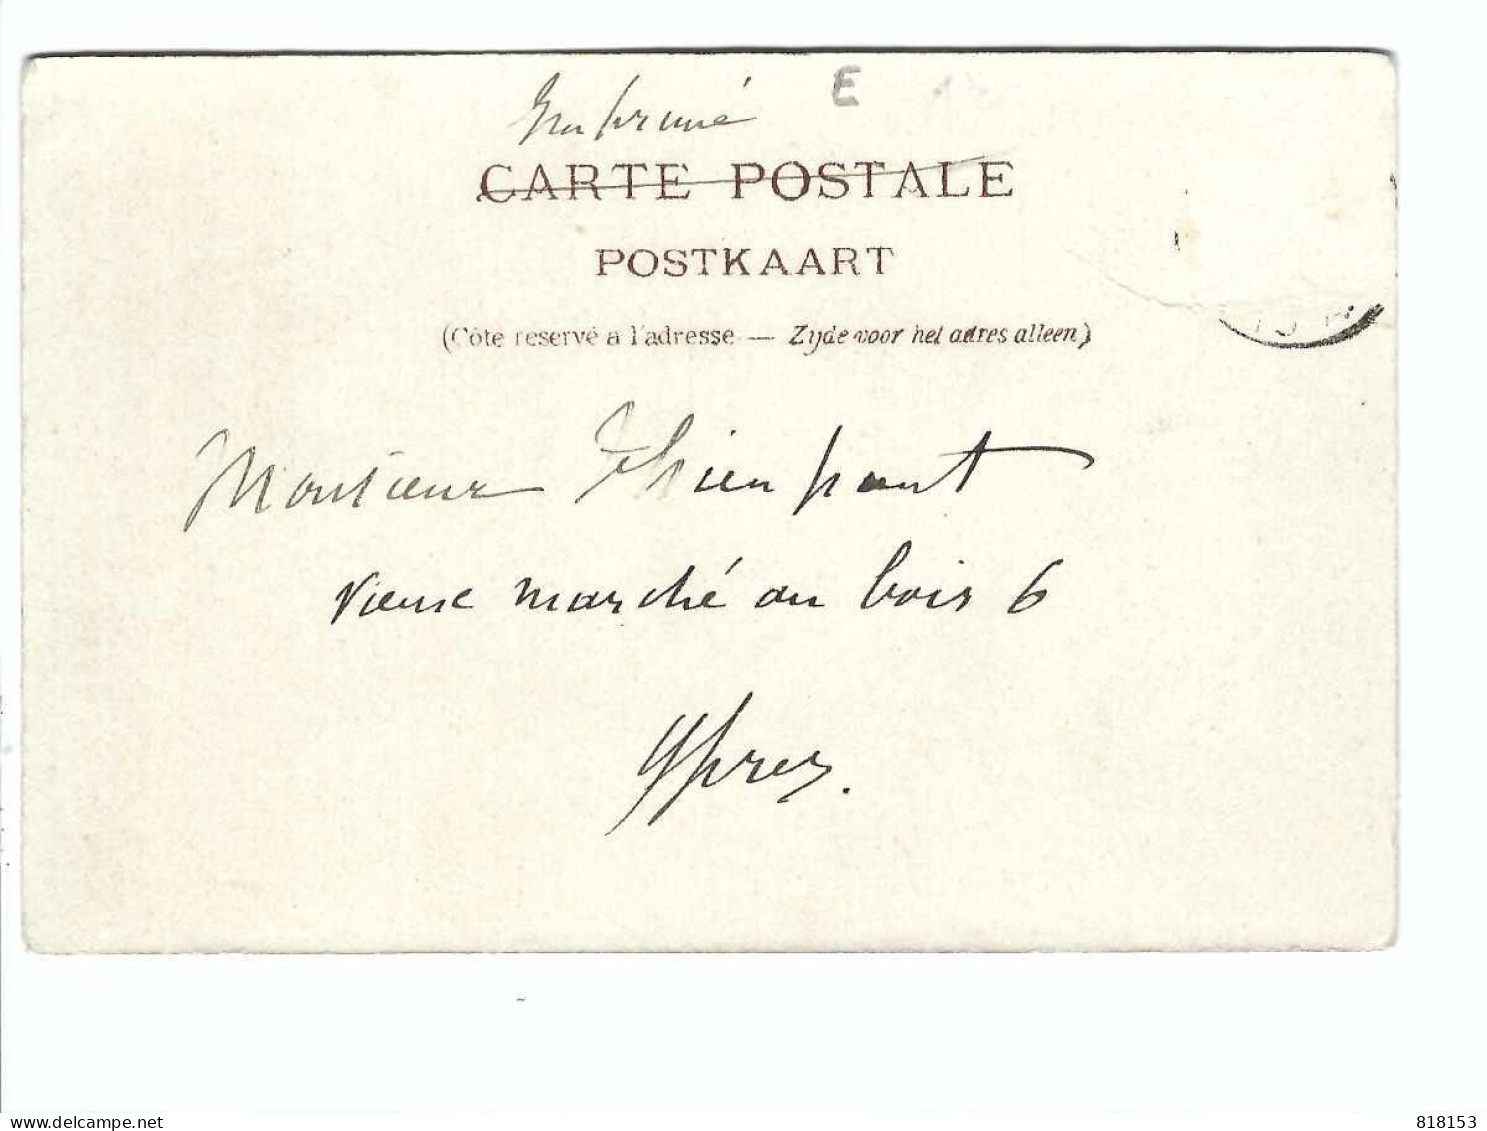 Imprimé
E
CARTE POSTALE
POSTKAART
(Côte reservé a l'adresse — Zijde voor het adres alleen)
Monsieur Thienpont
vieux marché au bois 6
Ypres.
delcampe.net
818153